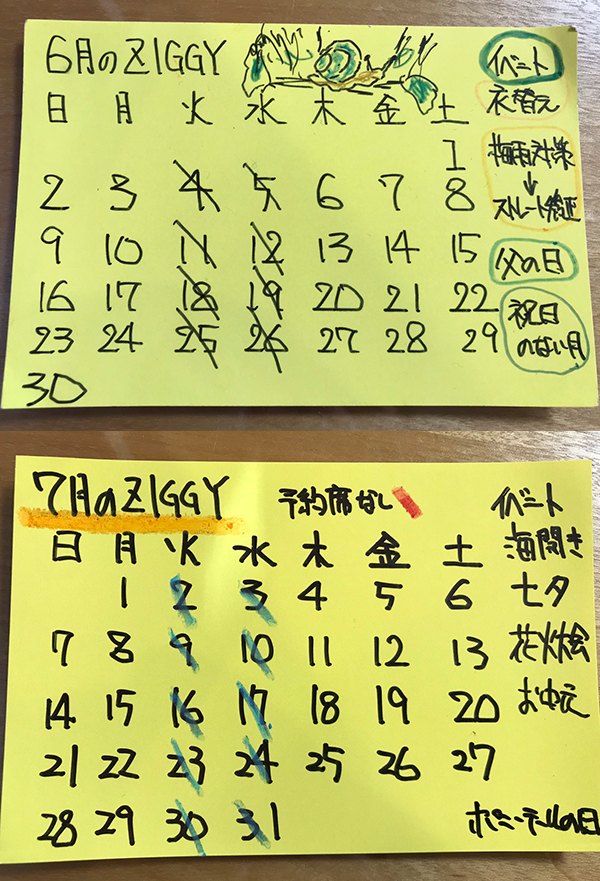 6月のZIGGY
イベント
日 月 火 水 木 金 土
衣替え
1
梅雨対策
↓
ストレート矯正
2 3 4 5 6 7 8
9 10 11 12 13 14 15
父の日
16 17 18 19 20 21 22
祝日
のない月
23 24 25 26 27 28 29
30
7月のZIGGY
予約席なし
イベント
日 月 火 水 木 金 土
海開き
1 2 3 4 5 6
七夕
7 8 9 10 11 12 13
花火大会
14 15 16 17 18 19 20
お中元
21 22 23 24 25 26 27
28 29 30 31
ポニーテールの日